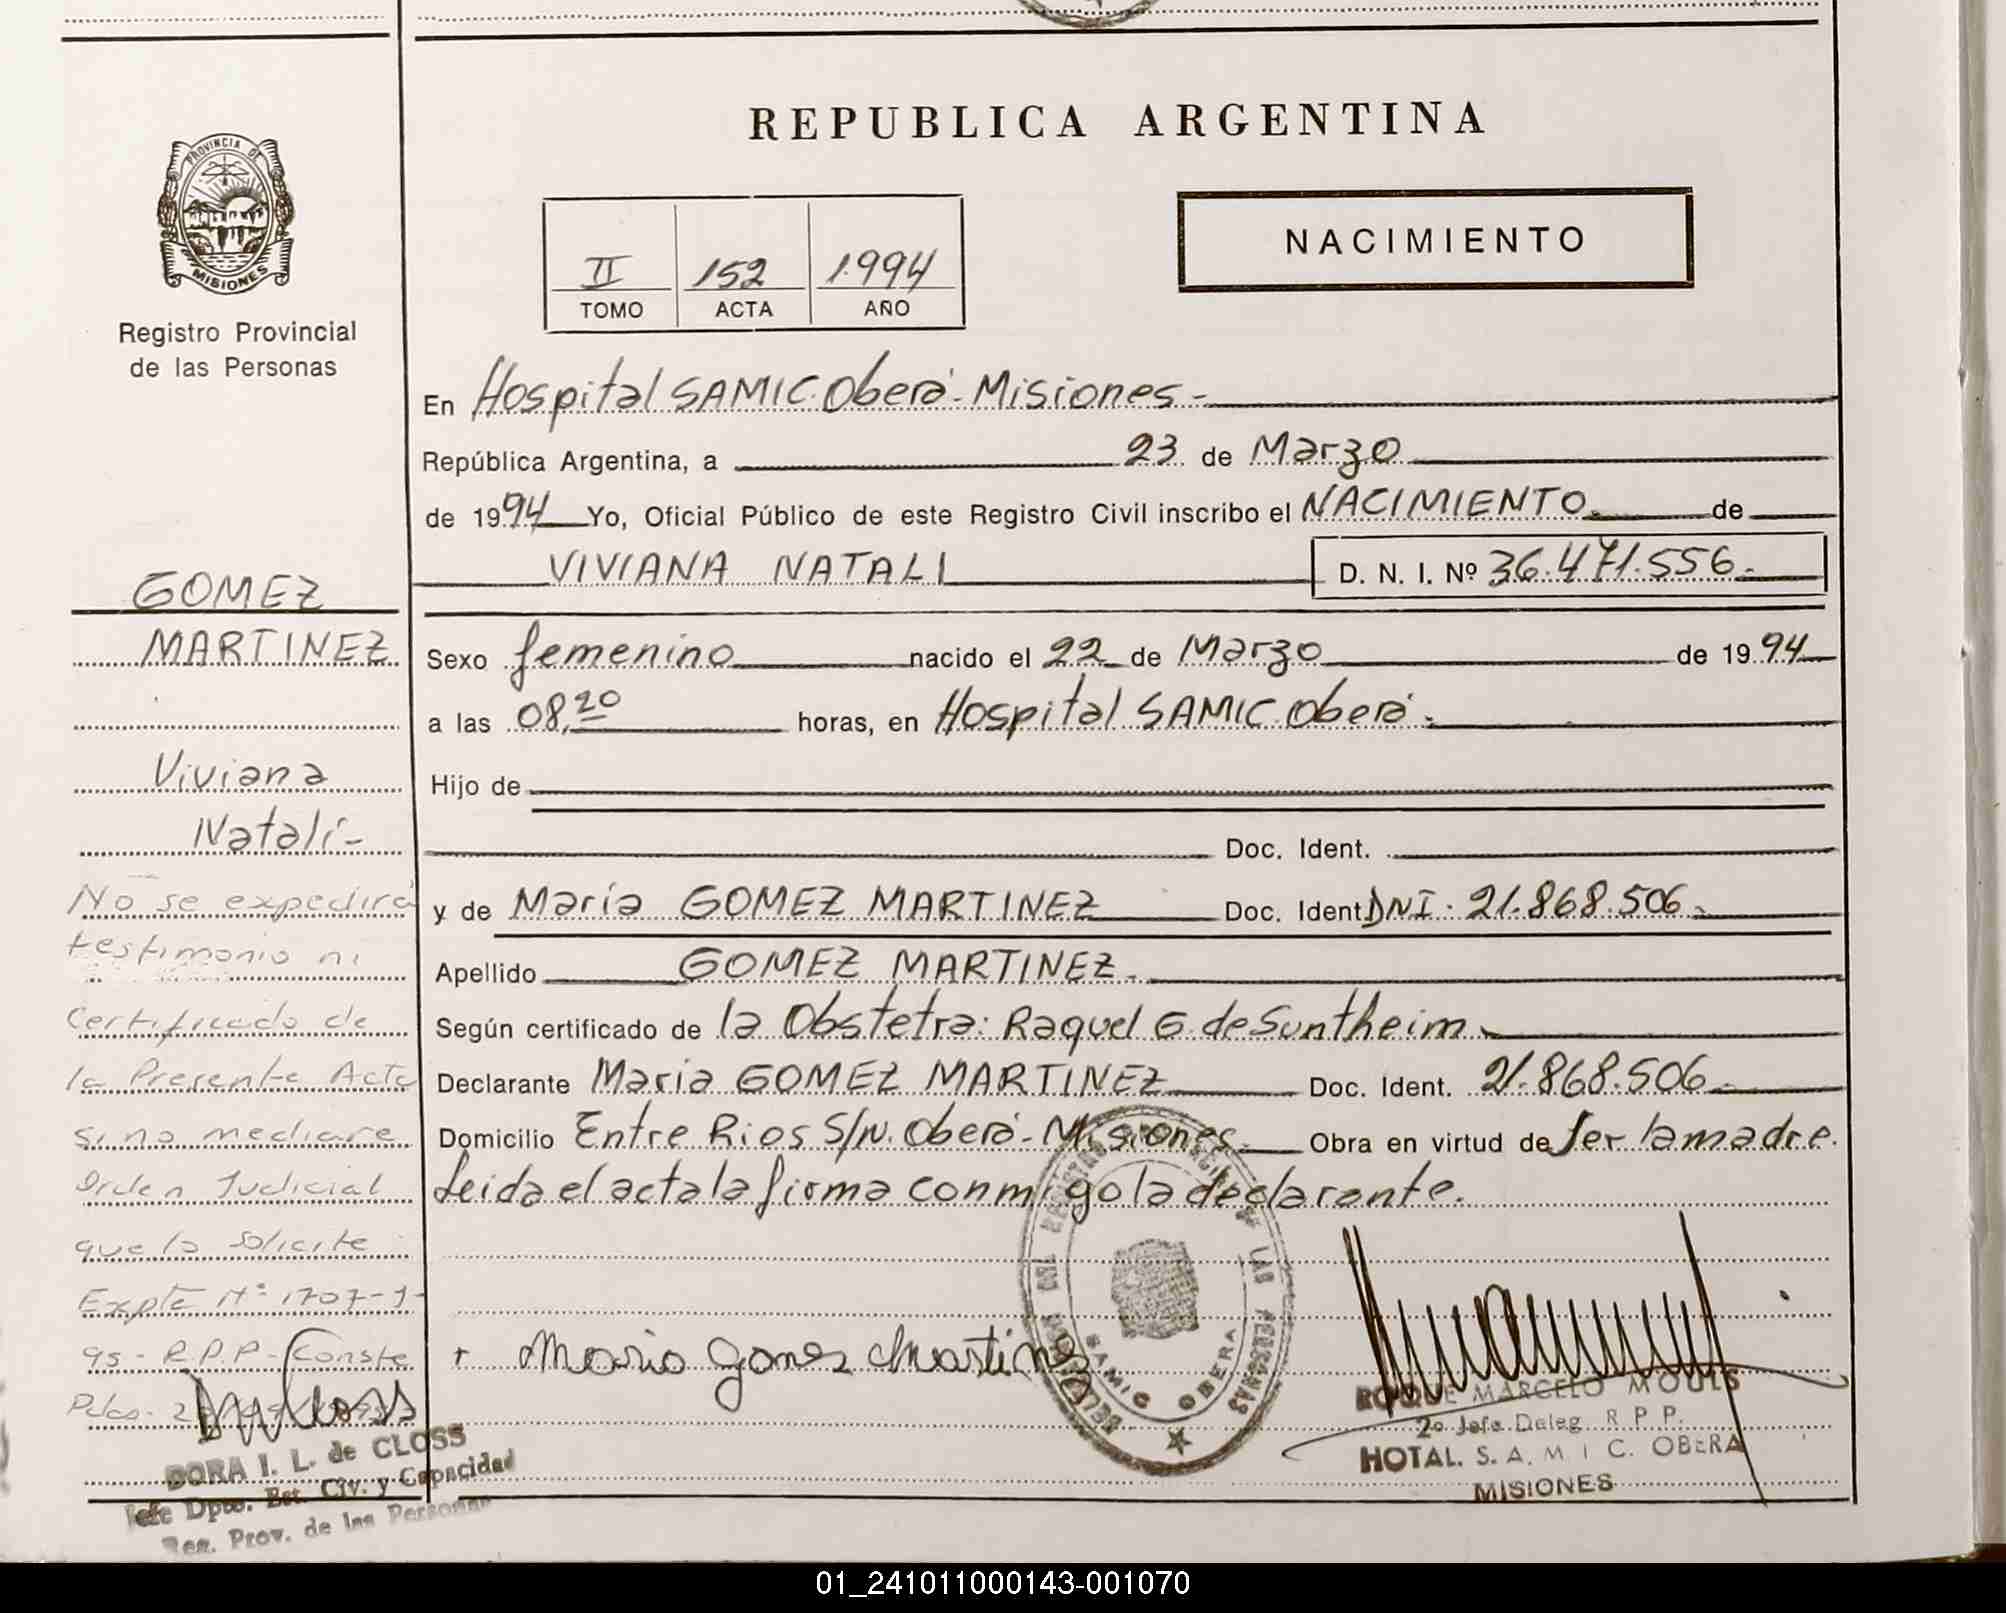 REPUBLICA ARGENTINA
PROVINCIA DE
MISIONES
Registro Provincial
de las Personas
NACIMIENTO
II 152 1994
TOMO ACTA AÑO
En Hospital SAMIC. Oberá - Misiones -
República Argentina, a 23 de Marzo
de 1994 Yo, Oficial Público de este Registro Civil inscribo el NACIMIENTO. de
VIVIANA NATALI D. N. I. Nº 36.471.556.-
Sexo femenino nacido el 22 de Marzo de 1994
a las 08,20 horas, en Hospital SAMIC. Oberá.-
Hijo de
Doc. Ident.
y de María GOMEZ MARTINEZ Doc. Ident DNI. 21.868.506.-
Apellido GOMEZ MARTINEZ.-
Según certificado de la Obstetra: Raquel G. de Suntheim.
Declarante María GOMEZ MARTINEZ Doc. Ident. 21.868.506.-
Domicilio Entre Rios S/N. Oberá - Misiones. Obra en virtud de ser la madre.
Leida el acta la firma conmigo la declarante.
GOMEZ
MARTINEZ
Viviana
Natalí-
No se expedirá
testimonio ni
Certificado de
la Presente Acta
si no mediare
Orden Judicial
que lo solicite
Expte Nº 1707-J-
95- R.P.P- Conste
Pdas-
DORA I. L. de CLOSS
Jefe Dpto. Est. Civ. y Capacidad
Reg. Prov. de las Personas
+ Maria Gomez Martinez
SAMIC OBERA
LAS PERSONAS
ROQUE MARCELO MOULS
2º Jefe Deleg. R. P. P.
HOTAL. S. A. M I C. OBERA
MISIONES
01_241011000143-001070